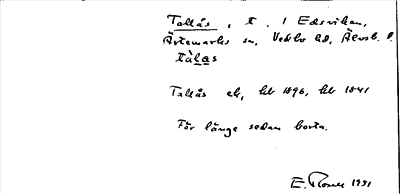 Tallås, t. i Edsviken,
Ärtemarks sn, Vedbo hd, Älvsb. l.
tålas
Tallås ek, hb 1896, hb 1841
För länge sedan borta.
E. 1931